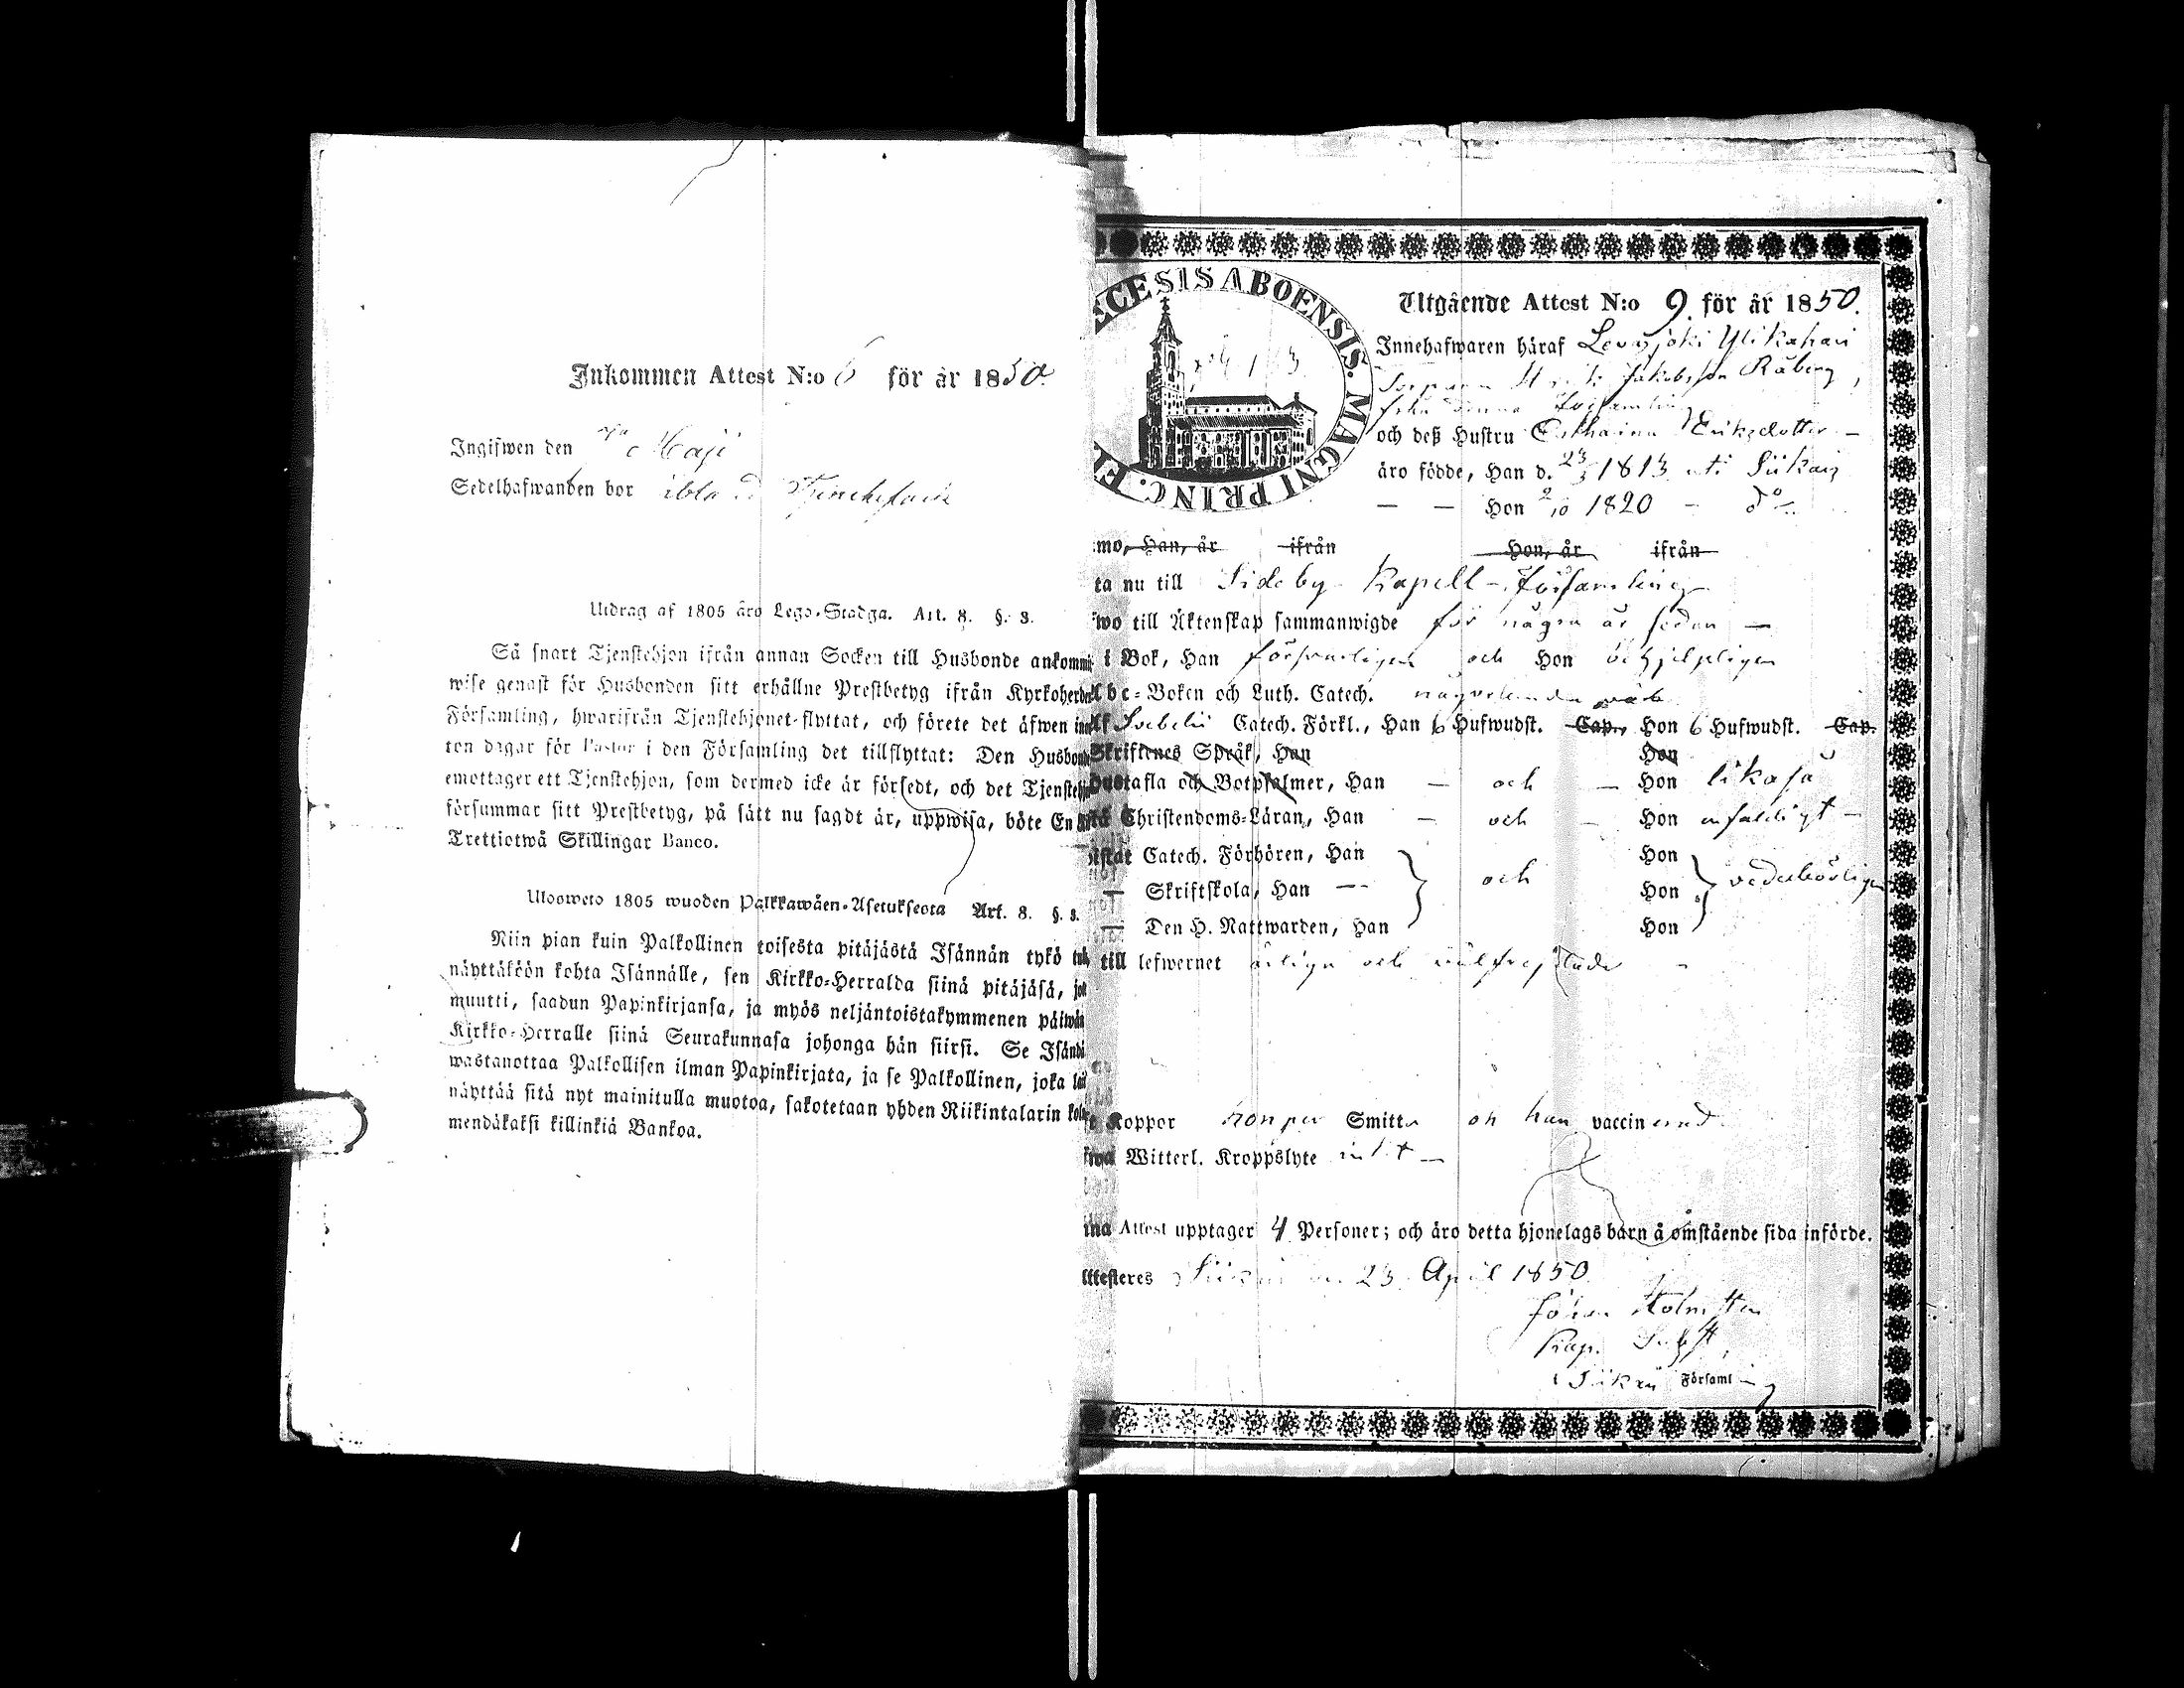 Inkommen Attest N:o 6 för år 1850.
Ingifwen den Maji
Sedelhafwanden bor
Utdrag af 1805 års Lego-Stadga. Art. 8. §. 3.
Så snart Tjenstehjon ifrån annan Socken till Husbonde ankommit
wise genast för Husbonden sitt erhållne Prestbetyg ifrån Kyrkoherden
Församling, hwarifrån Tjenstehjonet flyttat, och förete det äfwen
ton dagar för Pastor i den Församling det tillflyttat: Den Husbonde
emottager ett Tjenstehjon, som dermed icke är försedt, och det Tjenstehjon
försummar sitt Prestbetyg, på sätt nu sagdt är, uppwisa, böte En
Trettiotwå Skillingar Banco.
Ulosweto 1805 wuoden Palkkawäen-Asetuksesta Art. 8. §. 3.
Niin pian kuin Palkollinen toisesta pitäjästä Isännän tykö
näyttäköön kohta Isännälle, sen Kirkko-Herralda siinä pitäjäsä,
muutti, saadun Papinkirjansa, ja myös neljäntoistakymmenen päiwän
Kirkko-Herralle siinä Seurakunnasa johonga hän siirsi. Se Isändä
wastanottaa Palkollisen ilman Papinkirjata, ja se Palkollinen, joka
näyttää sitä nyt mainitulla muotoa, sakotetaan yhden Riikintalarin
mendäkaksi killinkiä Bankoa.
ECESIS ABOENSIS. MAGNI PRINC. F
Utgående Attest N:o 9 för år 1850.
Innehafwaren häraf Ylikahari
Jakobsson Råberg,
Församling
och deß Hustru Catharina Eriksdotter –
äro födde, Han d. 23/3 1813 uti Siikais
— — Hon 2/10 1820 – do
mo, Han, år ifrån Hon, år ifrån
ta nu till Sideby Kapell-Församling
wo till Äktenskap sammanwigde för några år sedan —
i Bok, Han försvarligen och Hon
bc-Boken och Luth. Catech. någorlunda
Svebelii Catech. Förkl., Han 6 Hufwudst. Cap., Hon 6 Hufwudst. Cap.
Skriftenes Språk, Han Hon
Hustafla och Botpsalmer, Han — och — Hon likaså
Christendoms-Läran, Han — och — Hon enfaldigt —
Catech. Förhören, Han Hon
— Skriftskola, Han — och Hon vederbörligen
— Den H. Nattwarden, Han Hon
till lefwernet ärliga och välfrejdade
Koppor Smitta och han vaccinerad
Witterl. Kroppslyte intet —
na Attest upptager 4 Personer; och äro detta hjonelags barn å omstående sida införde.
ttesteres 23 April 1850.
Johan Holmsten
Kap.
i Församling